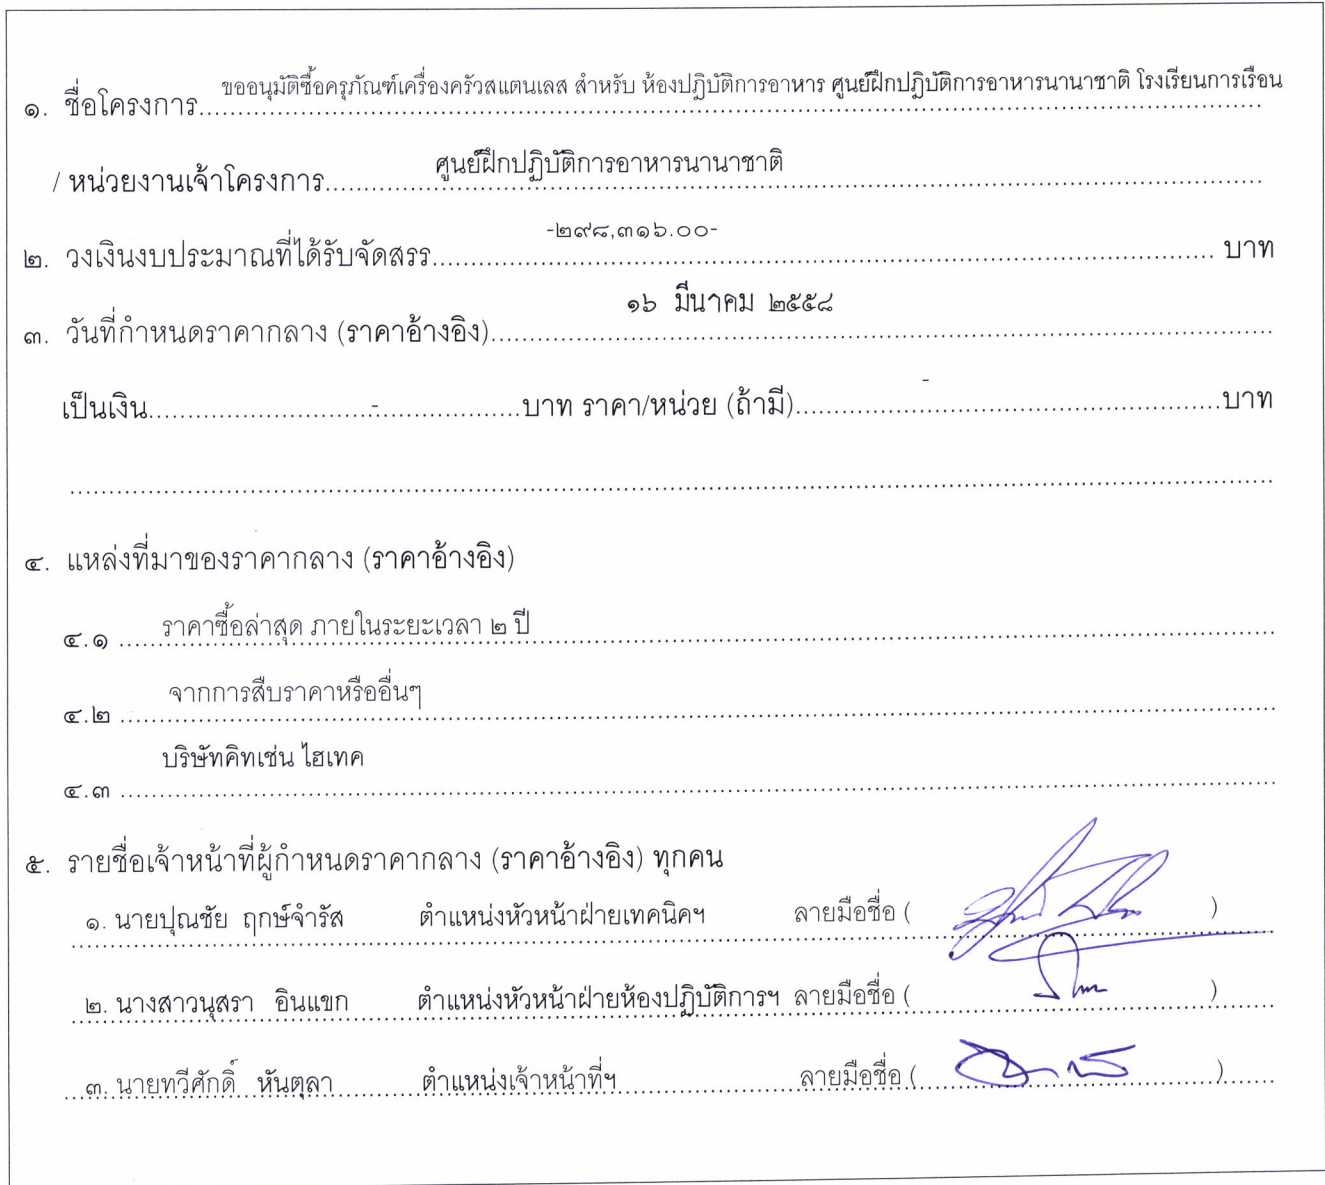 ๑. ชื่อโครงการ ขออนุมัติซื้อครุภัณฑ์เครื่องครัวสแตนเลส สำหรับ ห้องปฏิบัติการอาหาร ศูนย์ฝึกปฏิบัติการอาหารนานาชาติ โรงเรียนการเรือน
/ หน่วยงานเจ้าโครงการ ศูนย์ฝึกปฏิบัติการอาหารนานาชาติ
๒. วงเงินงบประมาณที่ได้รับจัดสรร -๒๙๘,๓๑๖.๐๐- บาท
๓. วันที่กำหนดราคากลาง (ราคาอ้างอิง) ๑๖ มีนาคม ๒๕๕๘
เป็นเงิน - บาท ราคา/หน่วย (ถ้ามี) - บาท
๔. แหล่งที่มาของราคากลาง (ราคาอ้างอิง)
๔.๑ ราคาซื้อล่าสุด ภายในระยะเวลา ๒ ปี
๔.๒ จากการสืบราคาหรืออื่นๆ
๔.๓ บริษัทคิทเช่น ไฮเทค
๕. รายชื่อเจ้าหน้าที่ผู้กำหนดราคากลาง (ราคาอ้างอิง) ทุกคน
๑. นายปุณชัย ฤกษ์จำรัส ตำแหน่งหัวหน้าฝ่ายเทคนิคฯ ลายมือชื่อ ( )
๒. นางสาวนุสรา อินแขก ตำแหน่งหัวหน้าฝ่ายห้องปฏิบัติการฯ ลายมือชื่อ ( )
๓. นายทวีศักดิ์ หันตุลา ตำแหน่งเจ้าหน้าที่ฯ ลายมือชื่อ ( )